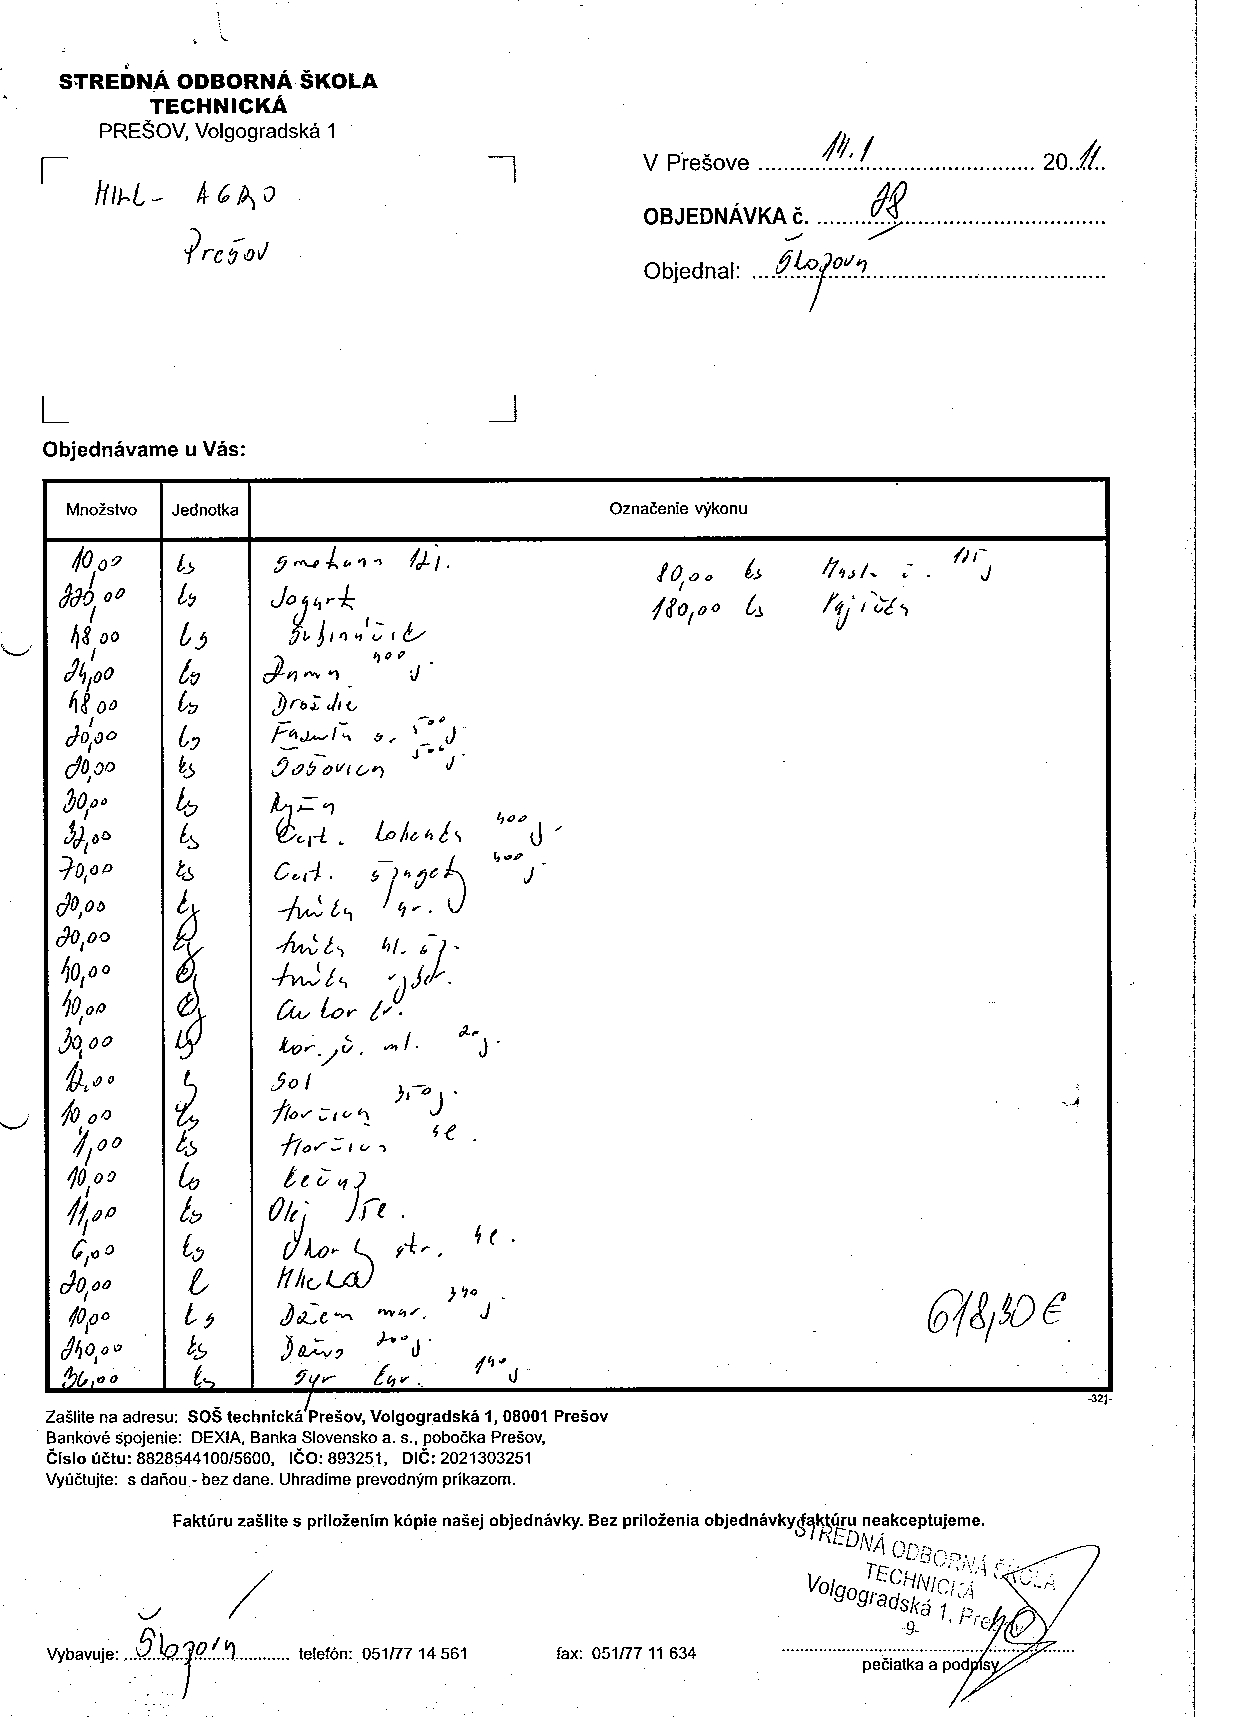 STREDNÁ ODBORNÁ ŠKOLA
TECHNICKÁ
PREŠOV, Volgogradská 1
AGRO
Prešov
V Prešove 14.1 2011
OBJEDNÁVKA č. 28
Objednal:
Objednávame u Vás:
Množstvo Jednotka Označenie výkonu
10,00 ks Smotana 12 l. 80,00 ks 125 g
220,00 ks Jogurt 180,00 ks
48,00 ks
24,00 ks 400 g.
48,00 ks Droždie
20,00 ks Fazuľa 500 g
20,00 ks Šošovica 500 g
30,00 ks Ryža
32,00 ks Cest. kolienka 400 g.
70,00 ks Cest. špagety 400 g.
20,00 múka hr.
20,00 múka hl. šp.
40,00 múka
40,00 Cukor kr.
30,00 Kor. č. ml. 20 g.
12,00 Soľ
10,00 ks Horčica 350 g.
1,00 ks Horčica 5 l.
10,00 ks Kečup
11,00 ks Olej
6,00 ks Uhorky 5 l.
20,00 l Mlieko
10,00 ks Džem mar. 340 g
240,00 ks 200 g.
36,00 ks Syr 140 g
618,30 €
-321-
Zašlite na adresu: SOŠ technická Prešov, Volgogradská 1, 08001 Prešov
Bankové spojenie: DEXIA, Banka Slovensko a. s., pobočka Prešov,
Číslo účtu: 8828544100/5600, IČO: 893251, DIČ: 2021303251
Vyúčtujte: s daňou - bez dane. Uhradíme prevodným príkazom.
Faktúru zašlite s priložením kópie našej objednávky. Bez priloženia objednávky faktúru neakceptujeme.
STREDNÁ ODBORNÁ ŠKOLA
TECHNICKÁ
Volgogradská 1, Prešov
-9-
Vybavuje: telefón: 051/77 14 561 fax: 051/77 11 634
pečiatka a podpisy